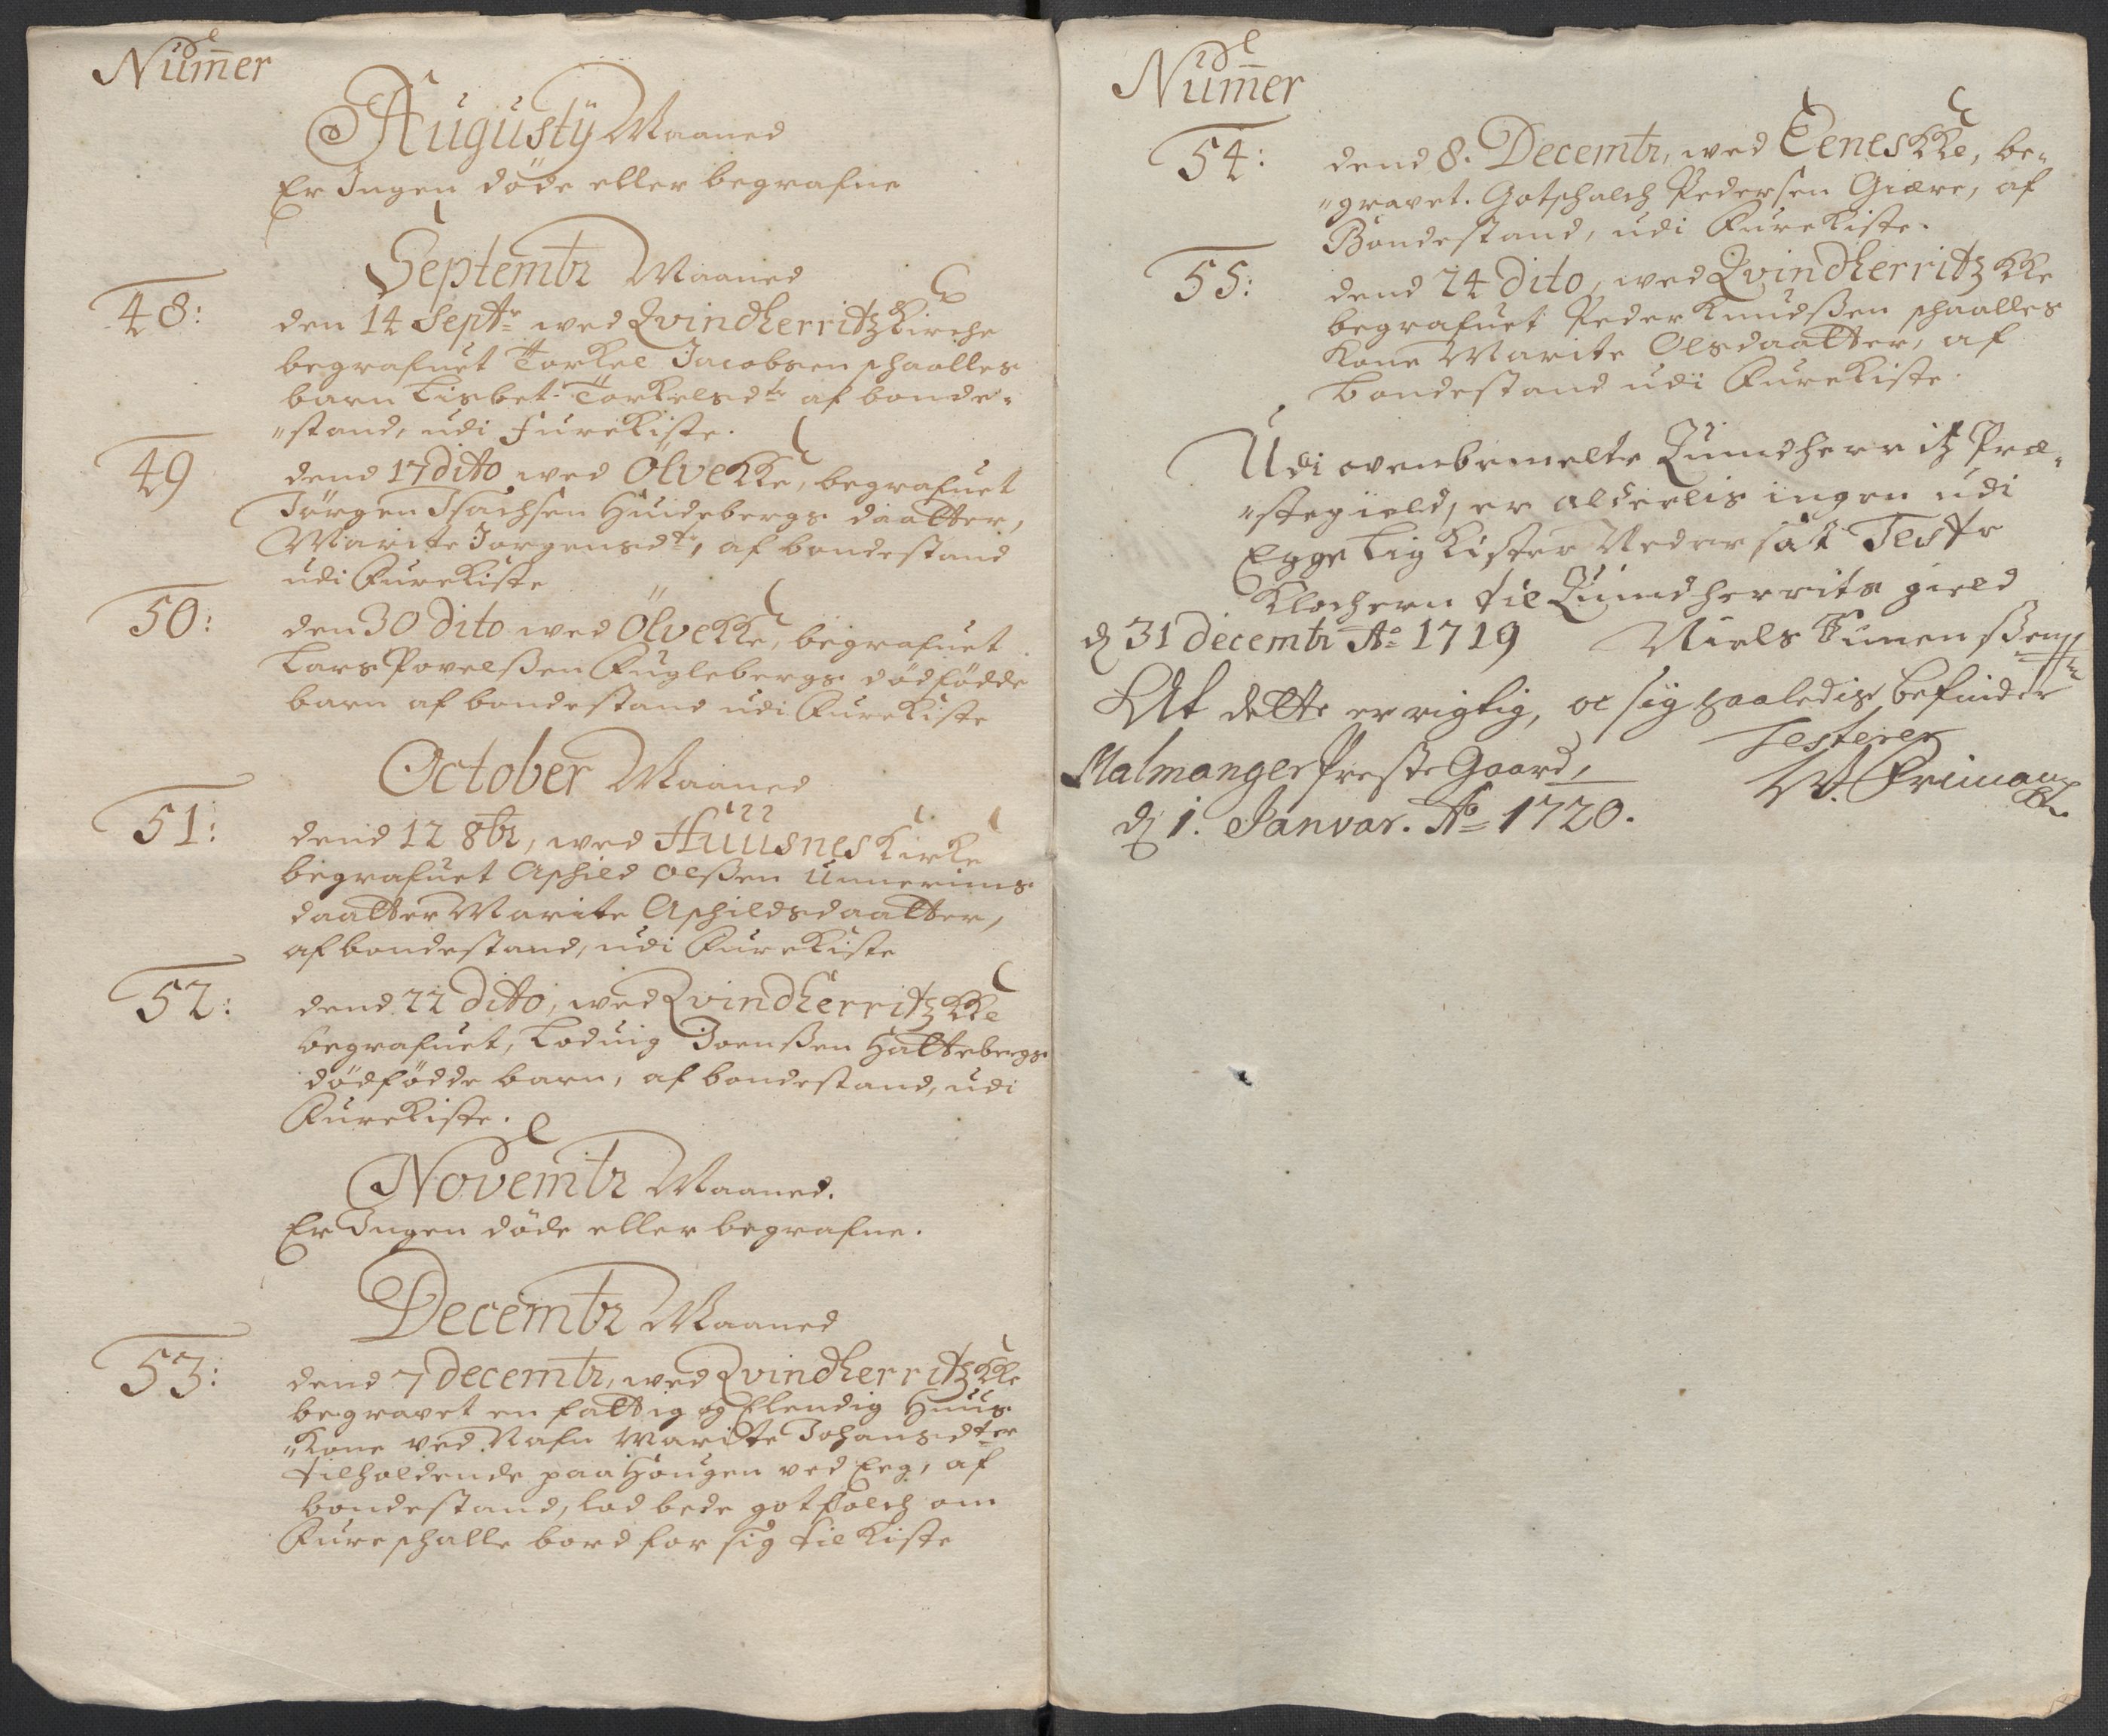 Num̄er
Augustÿ Maaned
Er Ingen döde eller begrafne
Septembr Maaned
48:
den 14 Septr. wed Qvindherritz Kirche
begrafuet Torkel Jacobsen schaalles
barn Lisbet Törkelsdtr af bonde-
"stand, udi furekiste.
49
dend 17 dito wed Ölve KKe, begrafuet
Jörgen Isachsen Huidebergs daatter,
Marite Jorgensdtr, af bondestand
udi Furekiste
50:
den 30 dito wed Ölve KKe, begrafuet
Lars Povelßen Fuglebergs dödfödde
barn af bondestand udi Furekiste
October Maaned
51:
dend 12 8br, wed Huusnes Kirke
begrafuet Aschild Olßen Unnerims
daatter Marite Aschildsdaatter,
af bondestand, udi Furekiste
52:
dend 22 dito, wed Qvindherritz KKe
begrafuet, Loduig Joenßen Hattebergs
dödfödde barn, af bondestand, udi
Furekiste.
Novembr Maaned.
Er Ingen döde eller begrafne.
Decembr Maaned
53:
dend 7 decembr, wed Qvindherritz KKe
begravet en fattig og Elendig Huus
"Kone ved Nafn Marite Johansdter
tilholdende paa Hougen ved Eeg, af
bondestand, lod bede got folch om
Fureschalle bord for sig til Kiste
Num̄er
54:
dend 8. Decembr, wed Eenes KKe, be-
"gravet. Gotschalch Pedersen Giære, af
Bondestand, udi Furekiste.
55:
dend 24 dito, wed Qvindherritz KKe
begrafuet Peder Knudßen schaalles
Kone Marite Olsdaatter, af
bondestand udi Furekiste.
Udi ovenbemelte Quindherritz Præ-
"stegield, er alderlis ingen udi
Egge Lig Kister Nedersat Teste
Klochern til Quindherrits gield
d 31 decembr Ao 1719 Niels Simenßen
At dette er rigtig, oc sig saaledis befinder
Testerer
Malmanger Preste Gaard,
W. Friman
d 1. Janvar. Ao 1720.